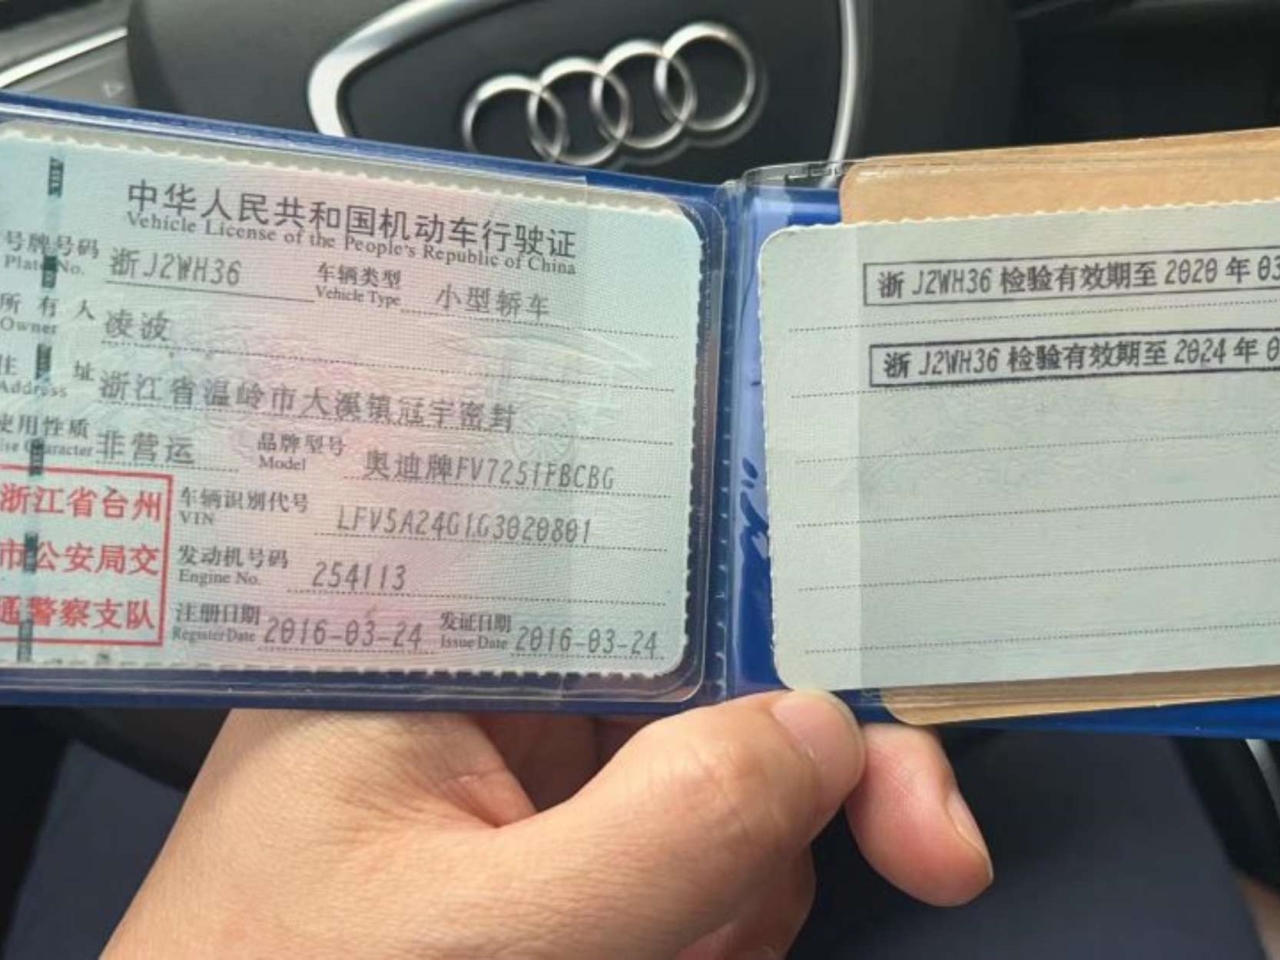 中华人民共和国机动车行驶证
Vehicle License of the People's Republic of China
号牌号码 浙J2WH36 车辆类型 小型轿车
Plate No. Vehicle Type
所有人 凌波
Owner
住址 浙江省温岭市大溪镇冠宇密封
Address
使用性质 非营运 品牌型号 奥迪牌FV7251FBCBG
Use Character Model
车辆识别代号 LFV5A24G1G3020801
VIN
发动机号码 254113
Engine No.
注册日期 2016-03-24 发证日期 2016-03-24
Register Date Issue Date
浙江省台州
市公安局交
通警察支队
浙J2WH36检验有效期至2020年03
浙J2WH36检验有效期至2024年0